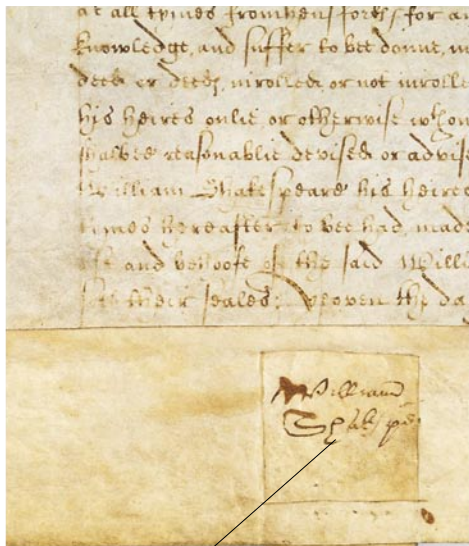 at all tymes from hensforth for a
knowledge, and suffer to bee donne, 
deed or deeds, inrolled or not inrolle
his heires onlie, or otherwise
shalbee reasonablie devised or advise
William Shakespeare his heires
tymes hereafter to bee had, made
use and behoofe of the said Willi
their seales: yeoven the da
William
Shaksper